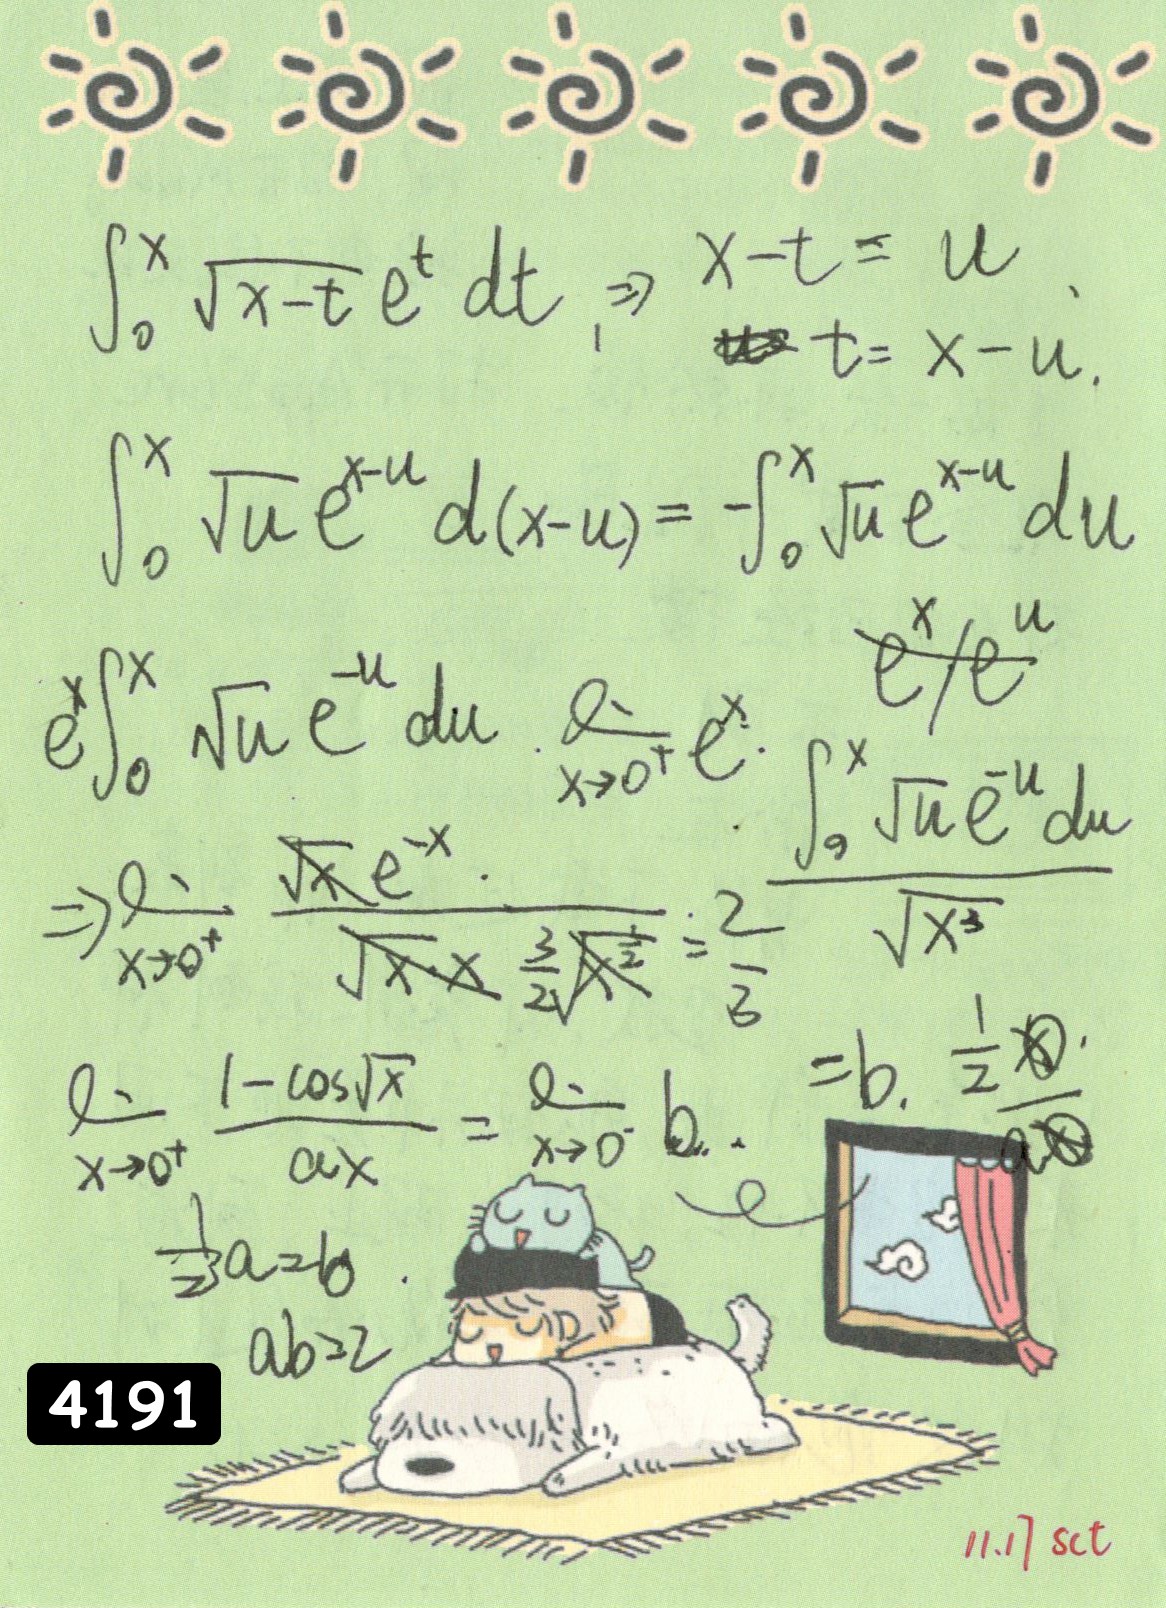 ∫₀ˣ √(x-t) eᵗ dt, ⇒ x-t = u
t = x-u.
∫₀ˣ √u e^(x-u) d(x-u) = -∫₀ˣ √u e^(x-u) du
eˣ/eᵘ
eˣ∫₀ˣ √u e^(-u) du . lim x→0⁺ eˣ. ∫₀ˣ √u e^(-u) du / √x³
⇒ lim x→0⁺ √x e^(-x) / √x·x 3/2 √x^(1/2) = 2/3
lim x→0⁺ (1-cos√x)/(ax) = lim x→0⁻ b. = b.
a = b
ab=2
4191
11.17 sct